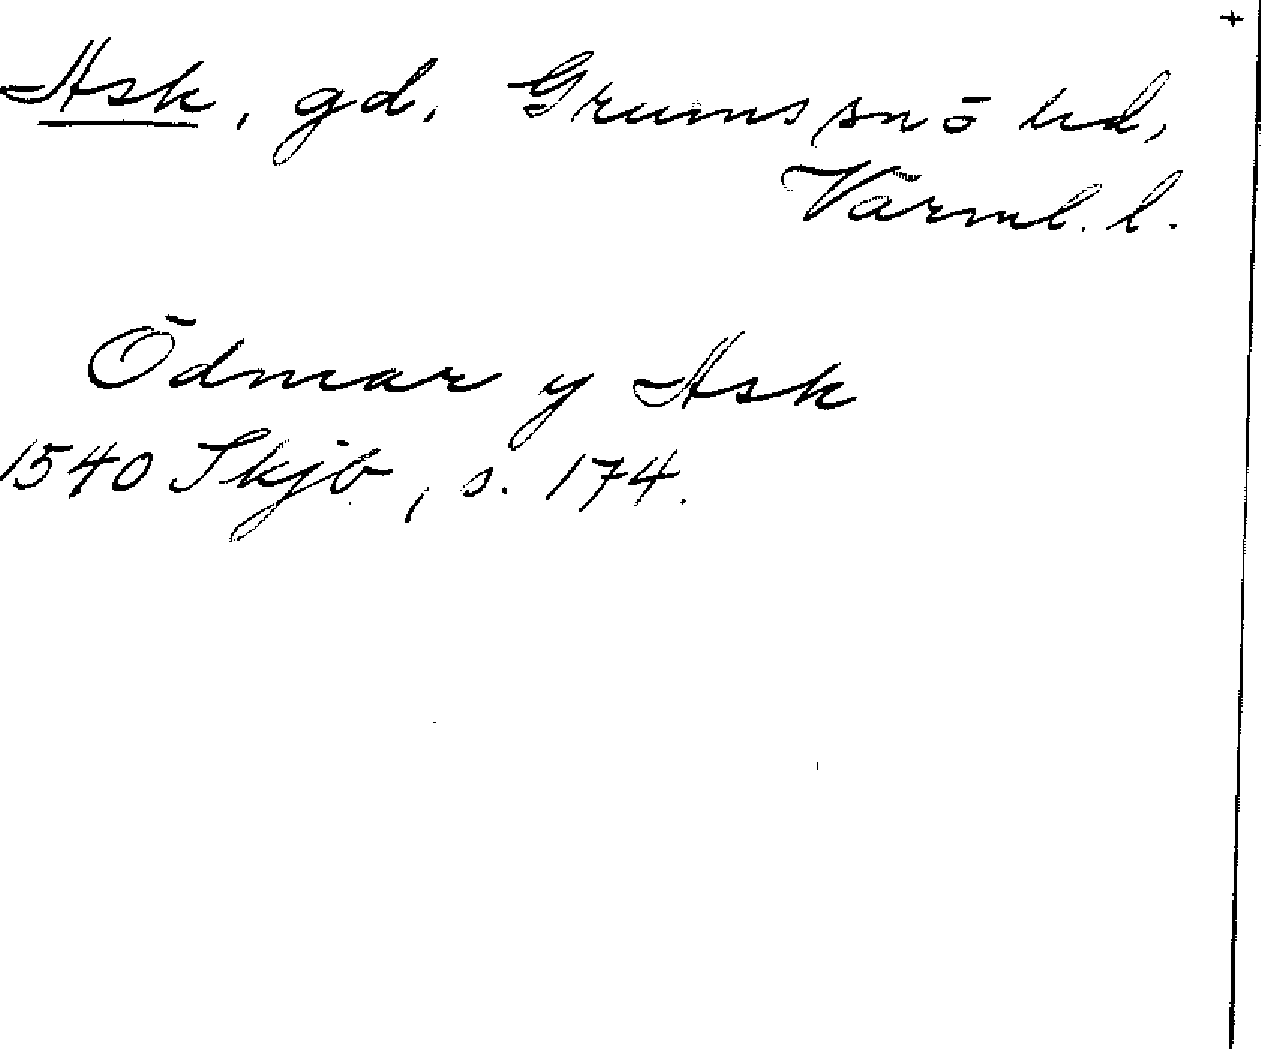 +
Ask, gd, Grums sn o hd,
Värml. l.
Ödmar y Ask
1540 Skjb, s. 174.